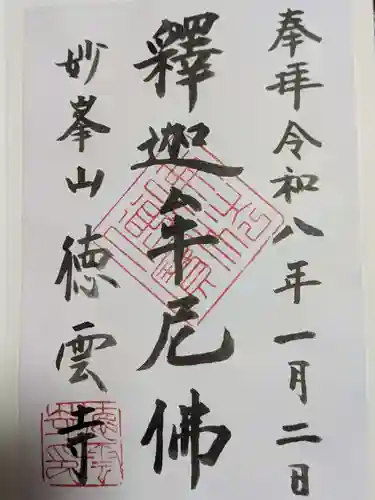 奉拝令和八年一月二日
釋迦牟尼佛
妙峯山德雲寺